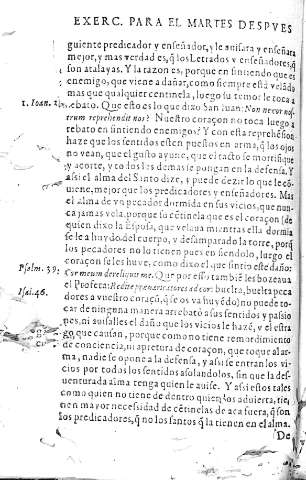 EXERC. PARA EL MARTES DESPVES
guiente predicador y enseñador, y le auisara y enseñara
mejor, y mas verdad es, q̃ los Letrados y enseñadores, q̃
son atalayas. Y la razon es, porque en sintiendo que es
enemigo, que viene a dañar, como siempre està velãdo
mas que qualquier centinela, luego su temor le toca a
rebato. Que esto es lo que dixo San Iuan: Non ne cor nos-
1. Ioan. 2.
trum reprehendit nos? Nuestro coraçon no toca luego a
rebato en sintiendo enemigos? Y con esta reprehesiõ
haze que los sentidos esten puestos en arma, q̃ los ojos
no vean, que el gusto ayune, que el tacto se mortifique
y açote, y todos los demas se pongan en la defensa. Y
assi el alma del Santo dize, y puede dezir lo que le cõ
uiene, mejor que los predicadores y enseñadores. Mas
el alma de vn pecador dormida en sus vicios, que nun-
ca jamas vela, porque su cẽtinela que es el coraçon (de
quien dixo la Esposa, que velaua mientras ella dormia
se le a huydo del cuerpo, y desamparado la torre, porq̃
los pecadores no la tienen pues en siendolo, luego el
coraçon se les huye, como dixo el que sintio este daño:
Psalm. 39.
Cor meum dereliquit me. Que por esso tambiẽ les bozeaua
el Profeta: Redite præuaricatores ad cor: buelta, buelta peca
Isai. 46.
dores a vuestro coraçõ, q̃ se os va huyẽdo) no puede to-
car de ninguna manera a rebatô a sus sentidos y passio
nes, ni auisalles el daño que los vicios le hazẽ, y el estra
go, que causan, porque como no tiene remordimiento
de conciencia, ni apretura de coraçon, que toque al ar-
ma, nadie se opone a la defensa, y assi se entran los vi-
cios por todos los sentidos asolandolos, sin que la des-
uenturada alma tenga quien le auise. Y assi estos tales
como quien no tiene de dentro quien los aduierta, tie
nen mayor necessidad de cẽtinelas de aca fuera, q̃ son
los predicadores, q̃ no los santos q̃ la tienen en el alma.
De